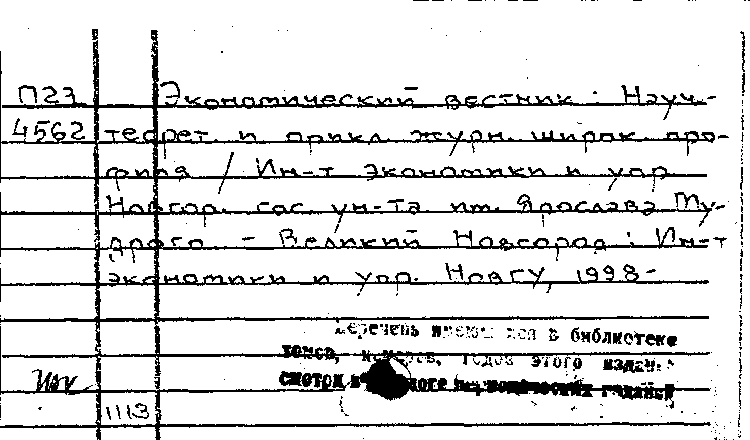 П23 Экономический вестник : Науч.-
4562 теорет. и прикл. журн. широк. про-
филя / Ин-т экономики и упр.
Новгор. гос. ун-та им. Ярослава Му-
дрого. - Великий Новгород : Ин-т
экономики и упр. НовГУ, 1998-
Перечень имеющихся в библиотеке
томов, номеров, годов этого издания
смотри в каталоге периодических изданий
1113